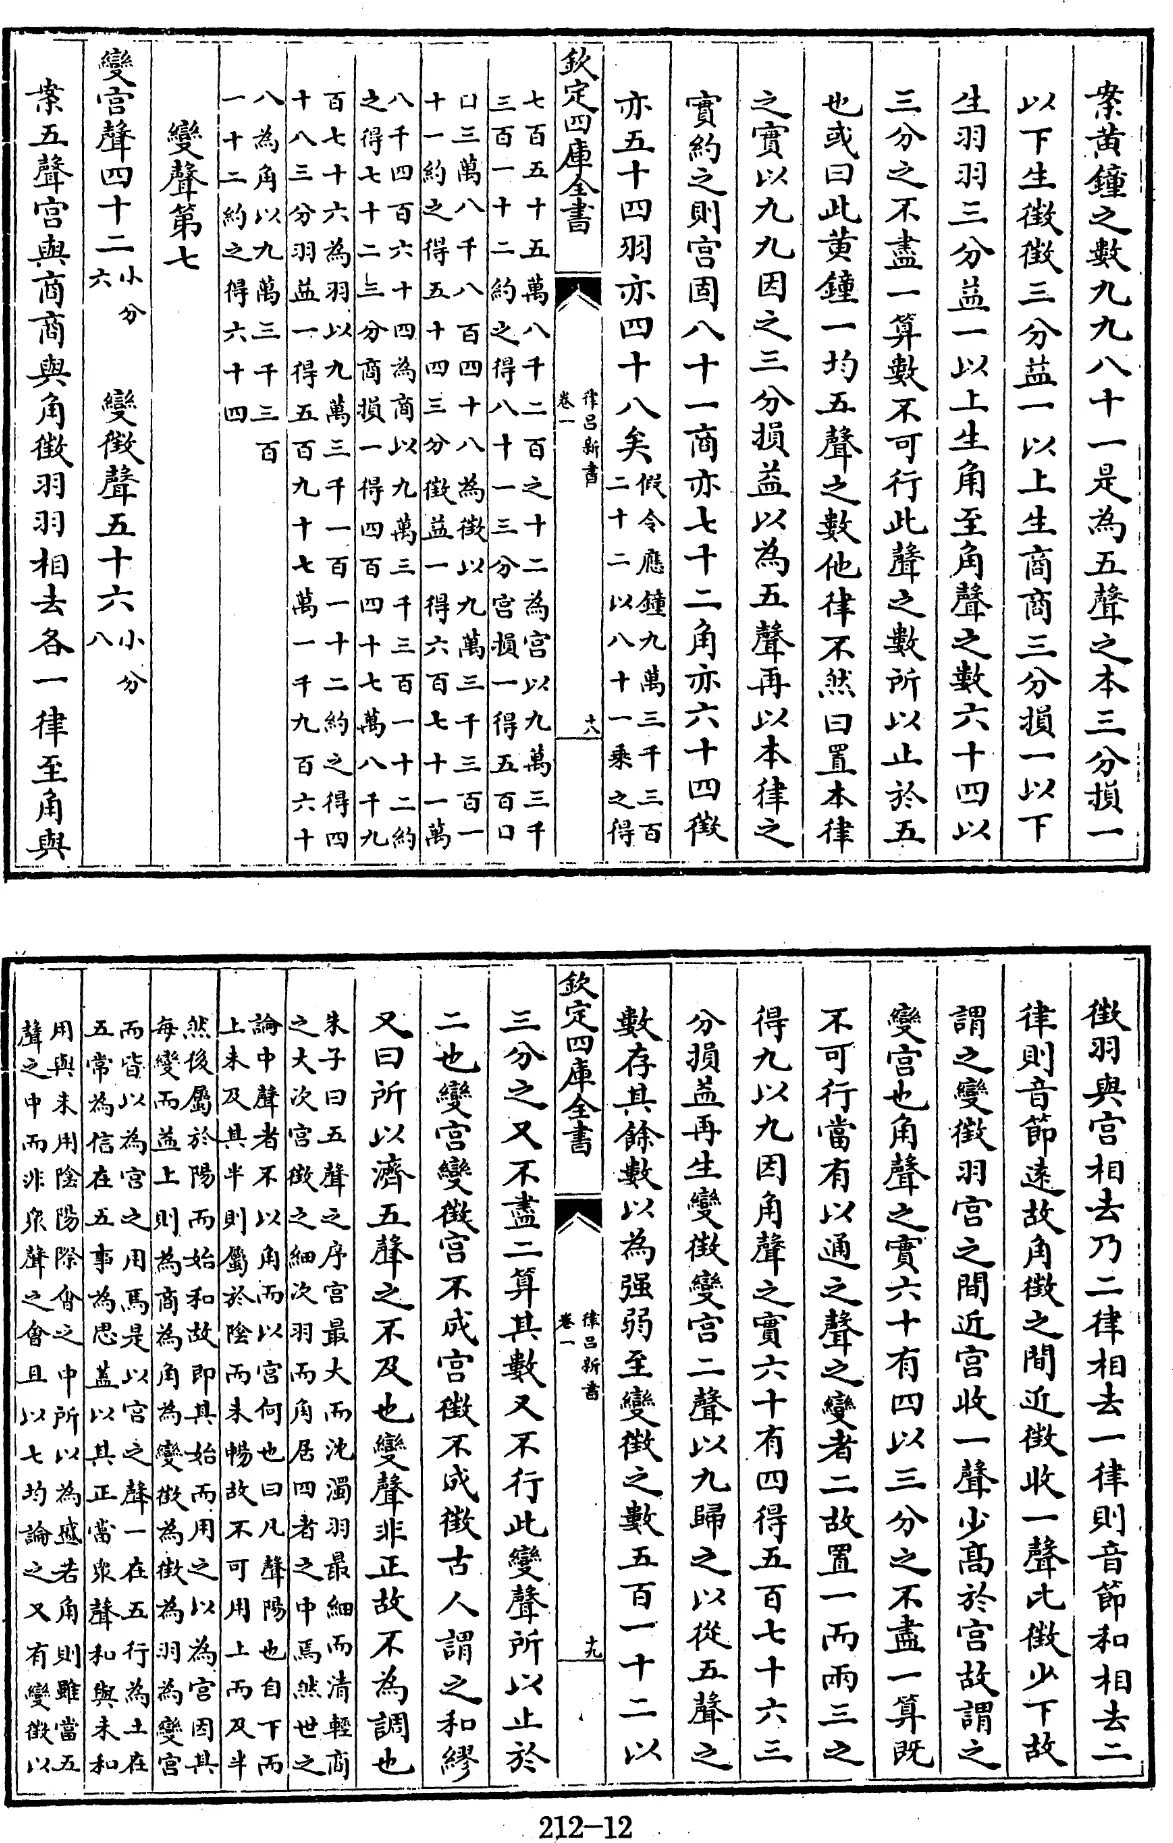 案黄鐘之數九九八十一是為五聲之本三分損一
以下生徵徵三分益一以上生商商三分損一以下
生羽羽三分益一以上生角至角聲之數六十四以
三分之不盡一算數不可行此聲之數所以止於五
也或曰此黄鐘一均五聲之數他律不然曰置本律
之實以九九因之三分損益以為五聲再以本律之
實約之則宫固八十一商亦七十二角亦六十四徵
亦五十四羽亦四十八矣假令應鐘九萬三千三百
二十二以八十一乘之得
欽定四庫全書
律吕新書
卷一
十八
七百五十五萬八千二百之十二為宫以九萬三千
三百一十二約之得八十一三分宫損一得五百口
口三萬八千八百四十八為徵以九萬三千三百一
十一約之得五十四三分徵益一得六百七十一萬
八千四百六十四為商以九萬三千三百一十二約
之得七十二三分商損一得四百四十七萬八千九
百七十六為羽以九萬三千一百一十二約之得四
十八三分羽益一得五百九十七萬一千九百六十
八為角以九萬三千三百
一十二約之得六十四
變聲第七
變宫聲四十二小分六 變徵聲五十六小分八
案五聲宫與商商與角徵羽羽相去各一律至角與
徵羽與宫相去乃二律相去一律則音節和相去二
律則音節逺故角徵之間近徵收一聲比徵少下故
謂之變徵羽宫之間近宫收一聲少髙於宫故謂之
變宫也角聲之實六十有四以三分之不盡一算既
不可行當有以通之聲之變者二故置一而兩三之
得九以九因角聲之實六十有四得五百七十六三
分損益再生變徵變宫二聲以九歸之以從五聲之
數存其餘數以為强弱至變徵之數五百一十二以
欽定四庫全書
律吕新書
卷一
十九
三分之又不盡二算其數又不行此變聲所以止於
二也變宫變徵宫不成宫徵不成徵古人謂之和繆
又曰所以濟五聲之不及也變聲非正故不為調也
朱子曰五聲之序宫最大而沈濁羽最細而清輕商
之大次宫徵之細次羽而角居四者之中焉然世之
論中聲者不以角而以宫何也曰凡聲陽也自下而
上未及其半則屬於陰而未暢故不可用上而及半
然後屬於陽而始和故即其始而用之以為宫因其
每變而益上則為商為角為變徵為徵為羽為變宫
而皆以為宫之用焉是以宫之聲一在五行為土在
五常為信在五事為思蓋以其正當衆聲和與未和
用與未用陰陽際會之中所以為盛若角則雖當五
聲之中而非衆聲之會且以七均論之又有變徵以
212-12